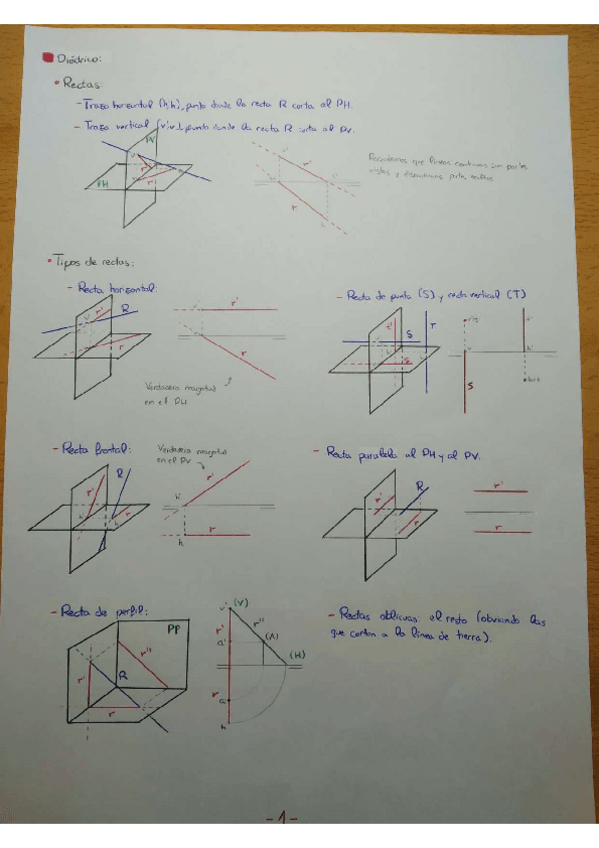 Diédrico:
• Rectas:
- Traza horizontal (h,h'), punto donde la recta R corta al PH.
- Traza vertical (v,v'), punto donde la recta R corta al PV.
PV
PH
r'
r
r'
r
Recordemos que líneas continuas son partes
vistas y discontinuas partes ocultas
• Tipos de rectas:
- Recta horizontal:
r'
R
r
r'
r
Verdadera magnitud
en el PH
- Recta de punta (S) y recta vertical (T)
S
T
s
s
- Recta frontal:
Verdadera magnitud
en el PV
R
r'
r
r'
h'
r
h
- Recta paralela al PH y al PV.
R
r'
r
r'
r
- Recta de perfil:
PP
r''
r'
R
r
v'
(V)
r'
r''
a'
(A)
(H)
r
a
h
- Rectas oblicuas: el resto (obviando las
que corten a la línea de tierra).
-1-